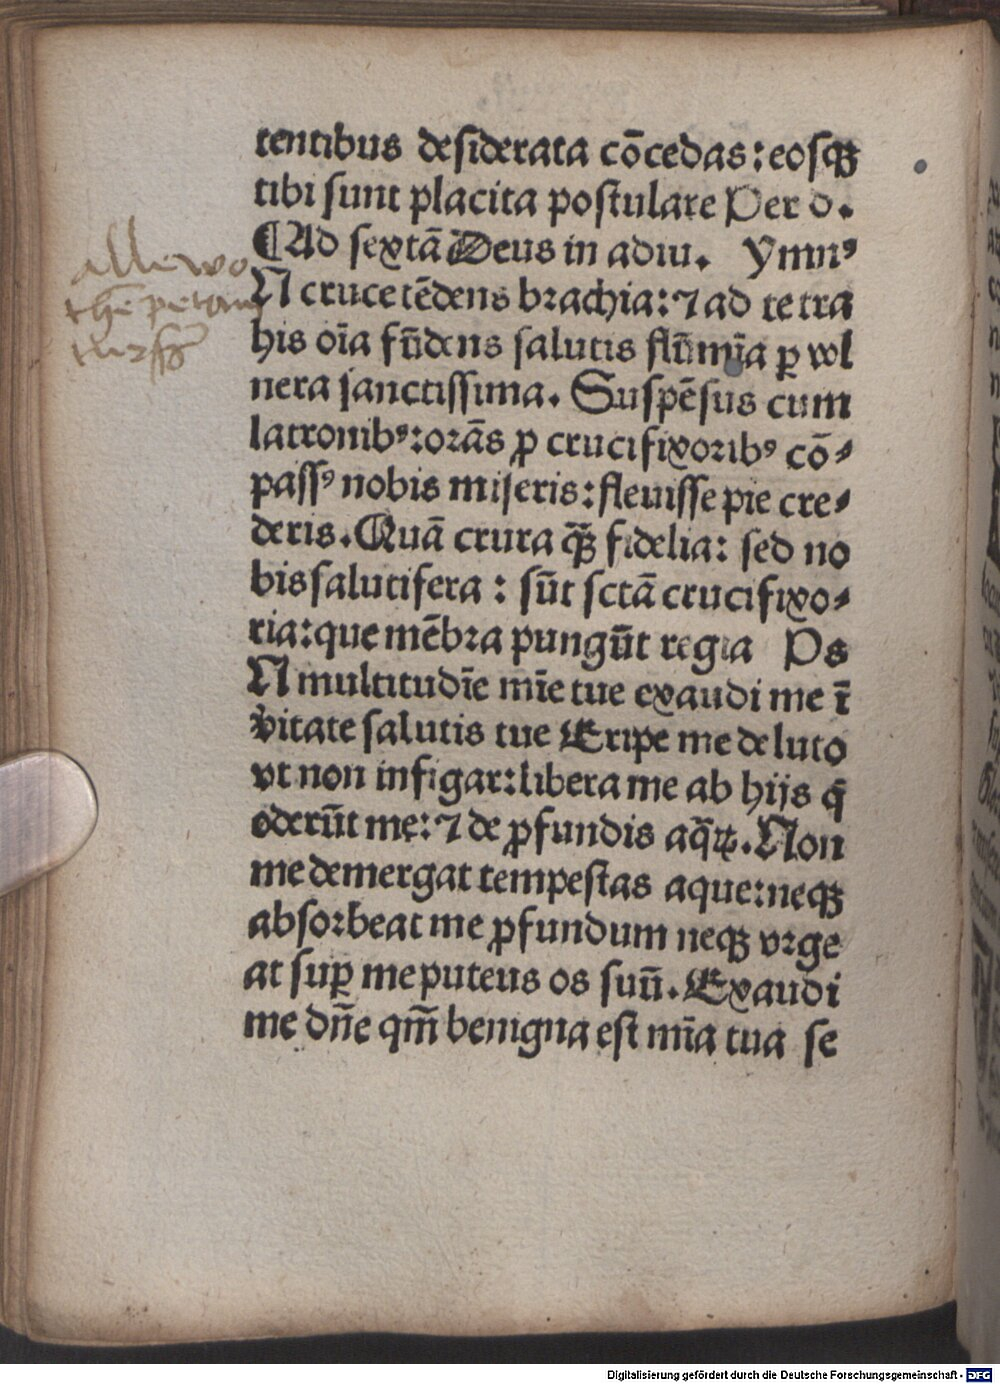 tentibus desiderata cōcedas: eosqꝫ
tibi sunt placita postulare Per d.
¶ Ad sextā Deus in adiu. Ymnꝰ
IN cruce tēdens brachia: ⁊ ad te tra
his oīa fūdens salutis flūmīa ꝑ vul
nera sanctissima. Suspēsus cum
latronibꝰ: orās ꝓ crucifixoribꝰ cō⸗
passꝰ nobis miseris: fleuisse pie cre⸗
deris. Quā crura qꝫ fidelia: sed no
bis salutifera : sūt sctā crucifixo⸗
ria: que mēbra pungūt regia Ps
IN multitudīe mīe tue exaudi me ī
v̾itate salutis tue Eripe me de luto
vt non infigar: libera me ab hijs q̄
oderūt me: ⁊ de ꝓfundis aq̄ꝝ. Non
me demergat tempestas aque: neqꝫ
absorbeat me ꝓfundum neqꝫ vrge
at suꝑ me puteus os suū. Exaudi
me dn̄e qm̄ benigna est mīa tua se
alle wo
Digitalisierung gefördert durch die Deutsche Forschungsgemeinschaft - DFG